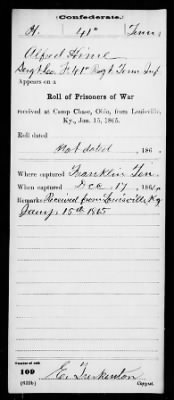 Confederate.
H. 41st Tenn.
Alfred Hime
Sergt. Co. F. 41st Regt Tenn Inf
Appears on a
Roll of Prisoners of War
received at Camp Chase, Ohio, from Louisville,
Ky., Jan. 15, 1865.
Roll dated
Not dated , 186 .
Where captured Franklin Ten.
When captured Dec 17 , 1864.
Remarks: Received from Louisville Ky
Jany 15th 1865
Number of roll:
109
(639b) E. Tunkenton Copyist.